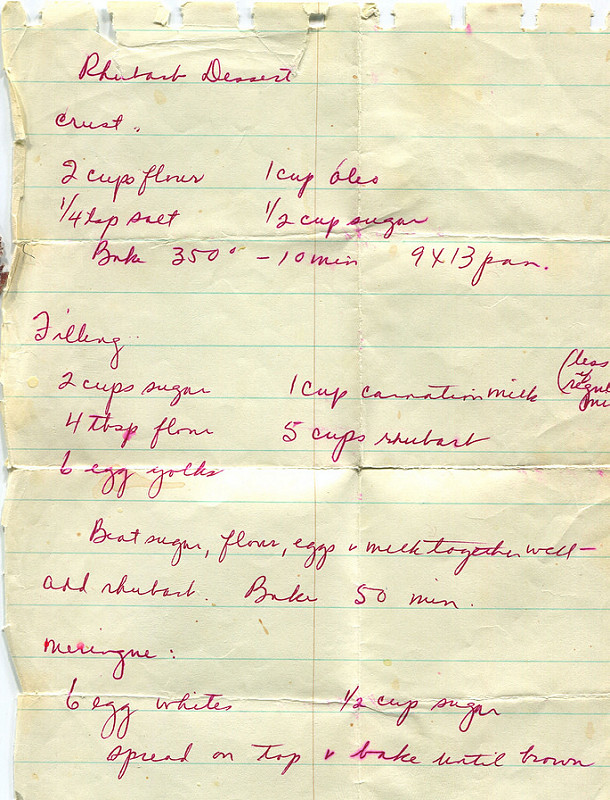 Rhubarb Dessert
Crust.
2 cups flour 1 cup oleo
1/4 tsp salt 1/2 cup sugar
Bake 350° - 10 min 9x13 pan.
Filling
2 cups sugar 1 cup carnation milk (less if regul mi
4 tbsp flour 5 cups rhubarb
6 egg yolks
Beat sugar, flour, eggs & milk together well -
add rhubarb. Bake 50 min.
Meringue:
6 egg whites 1/2 cup sugar
spread on top & bake until brown